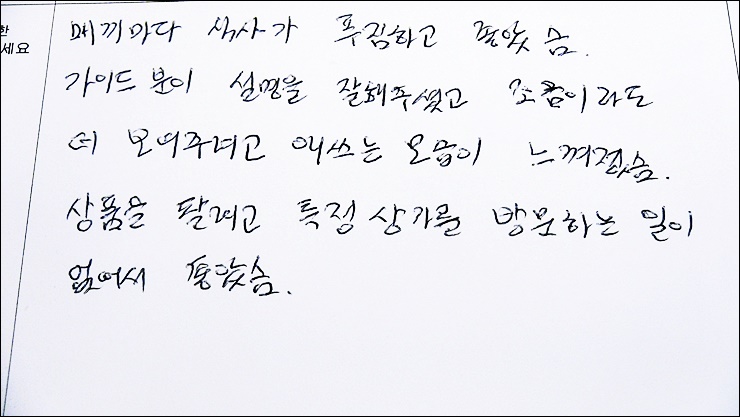 한
세요
매끼마다 식사가 푸짐하고 좋았슴.
가이드 분이 설명을 잘해주셨고 조금이라도
더 보여주려고 애쓰는 모습이 느껴졌슴.
상품을 팔려고 특정 상가를 방문하는 일이
없어서 좋았슴.